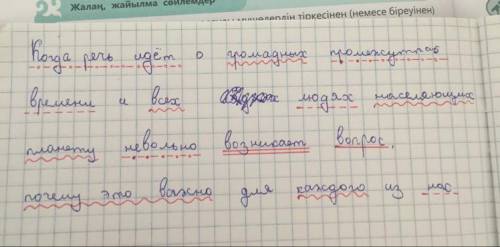 Жалаң, жайылма сөйлемдер
тіркесінен (немесе біреуінен)
Когда речь идёт о громадных промежутках
времени и всех людях населяющих
планету невольно возникает вопрос,
почему это важно для каждого из нас